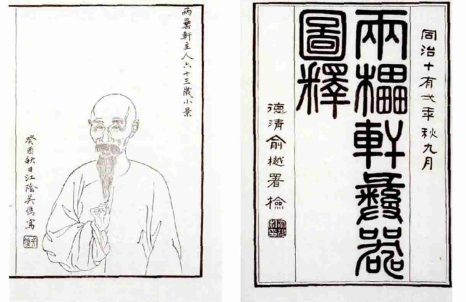 同治十有弍秊秋九月
兩罍軒彝器
圖釋
德清俞樾署檢
兩罍軒主人六十三歲小景
癸酉秋日江陰吳儁寫